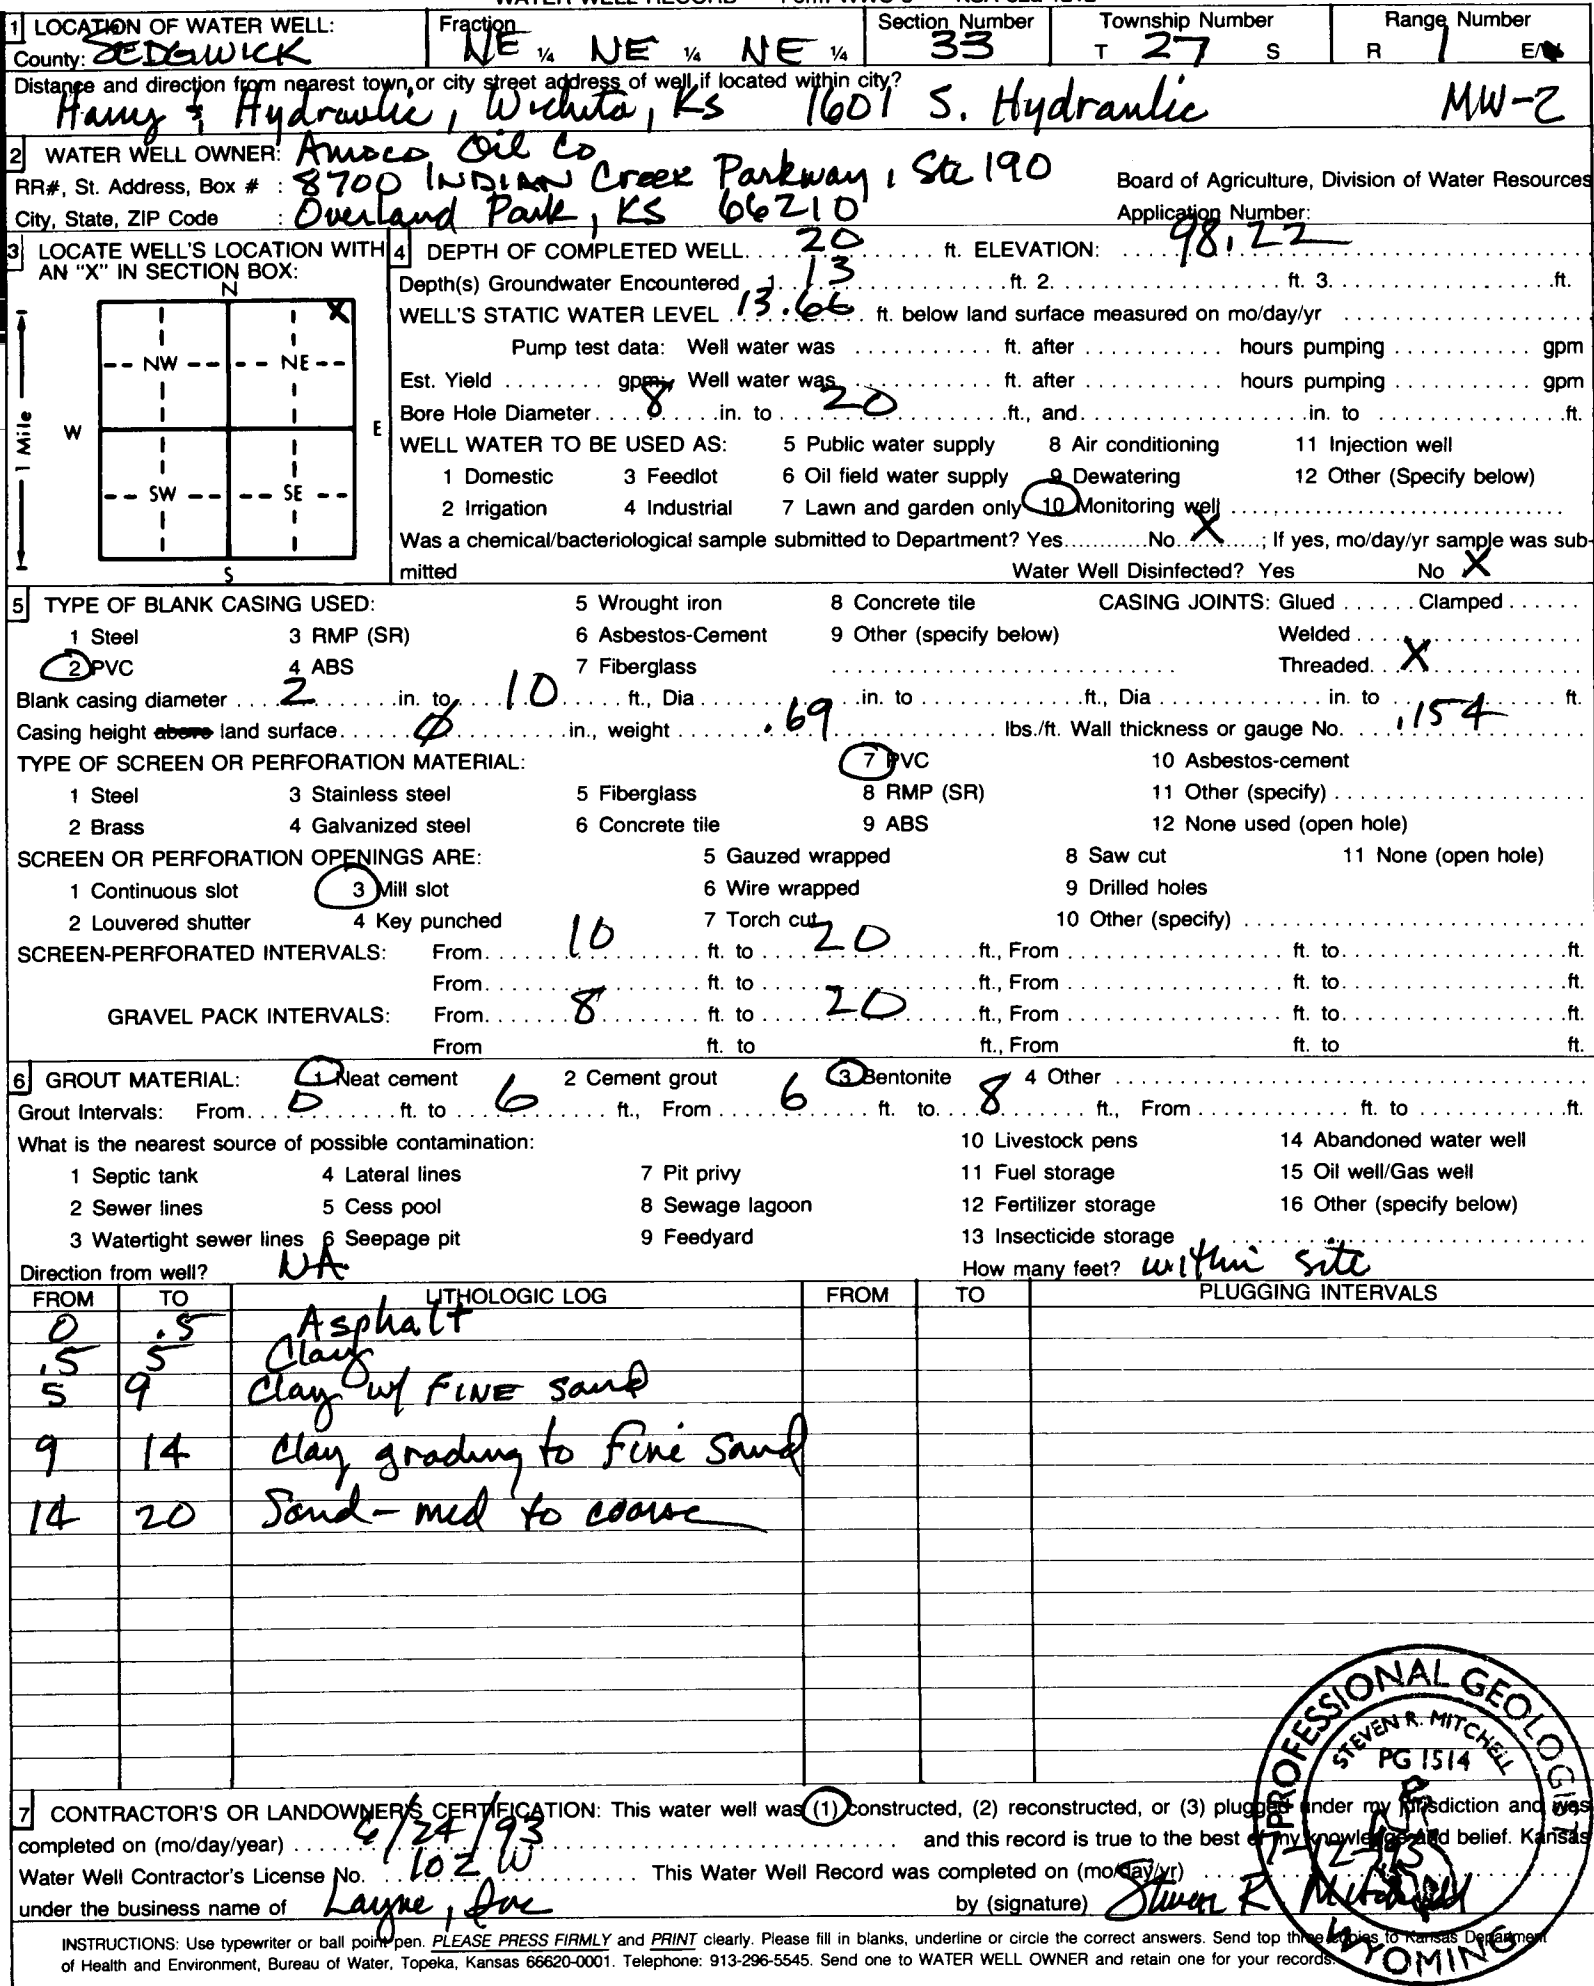 WATER WELL RECORD Form WWC-5 KSA 82a-1212
1 LOCATION OF WATER WELL: Fraction Section Number Township Number Range Number
County: SEDGWICK NE ¼ NE ¼ NE ¼ 33 T 27 S R 1 E/W
Distance and direction from nearest town or city street address of well if located within city?
Harry & Hydraulic, Wichita, KS 1601 S. Hydraulic MW-2
2 WATER WELL OWNER: Amoco Oil Co
RR#, St. Address, Box # : 8700 INDIAN Creek Parkway, Ste 190 Board of Agriculture, Division of Water Resources
City, State, ZIP Code : Overland Park, KS 66210 Application Number:
3 LOCATE WELL'S LOCATION WITH AN "X" IN SECTION BOX:
N
X
NW NE
W E
1 Mile
SW SE
S
4 DEPTH OF COMPLETED WELL 20 ft. ELEVATION: 98.22
Depth(s) Groundwater Encountered 1. 13 ft. 2. ft. 3. ft.
WELL'S STATIC WATER LEVEL 13.66 ft. below land surface measured on mo/day/yr
Pump test data: Well water was ft. after hours pumping gpm
Est. Yield gpm; Well water was ft. after hours pumping gpm
Bore Hole Diameter 8 in. to 20 ft., and in. to ft.
WELL WATER TO BE USED AS: 5 Public water supply 8 Air conditioning 11 Injection well
1 Domestic 3 Feedlot 6 Oil field water supply 9 Dewatering 12 Other (Specify below)
2 Irrigation 4 Industrial 7 Lawn and garden only 10 Monitoring well
Was a chemical/bacteriological sample submitted to Department? Yes No X ; If yes, mo/day/yr sample was sub-
mitted Water Well Disinfected? Yes No X
5 TYPE OF BLANK CASING USED: 5 Wrought iron 8 Concrete tile CASING JOINTS: Glued Clamped
1 Steel 3 RMP (SR) 6 Asbestos-Cement 9 Other (specify below) Welded
2 PVC 4 ABS 7 Fiberglass Threaded X
Blank casing diameter 2 in. to 10 ft., Dia in. to ft., Dia in. to ft.
Casing height above land surface 0 in., weight .69 lbs./ft. Wall thickness or gauge No. .154
TYPE OF SCREEN OR PERFORATION MATERIAL: 7 PVC 10 Asbestos-cement
1 Steel 3 Stainless steel 5 Fiberglass 8 RMP (SR) 11 Other (specify)
2 Brass 4 Galvanized steel 6 Concrete tile 9 ABS 12 None used (open hole)
SCREEN OR PERFORATION OPENINGS ARE: 5 Gauzed wrapped 8 Saw cut 11 None (open hole)
1 Continuous slot 3 Mill slot 6 Wire wrapped 9 Drilled holes
2 Louvered shutter 4 Key punched 7 Torch cut 10 Other (specify)
SCREEN-PERFORATED INTERVALS: From 10 ft. to 20 ft., From ft. to ft.
From ft. to ft., From ft. to ft.
GRAVEL PACK INTERVALS: From 8 ft. to 20 ft., From ft. to ft.
From ft. to ft., From ft. to ft.
6 GROUT MATERIAL: 1 Neat cement 2 Cement grout 3 Bentonite 4 Other
Grout Intervals: From 0 ft. to 6 ft., From 6 ft. to 8 ft., From ft. to ft.
What is the nearest source of possible contamination: 10 Livestock pens 14 Abandoned water well
1 Septic tank 4 Lateral lines 7 Pit privy 11 Fuel storage 15 Oil well/Gas well
2 Sewer lines 5 Cess pool 8 Sewage lagoon 12 Fertilizer storage 16 Other (specify below)
3 Watertight sewer lines 6 Seepage pit 9 Feedyard 13 Insecticide storage
Direction from well? NA How many feet? within site
FROM TO LITHOLOGIC LOG FROM TO PLUGGING INTERVALS
0 .5 Asphalt
.5 5 Clay
5 9 Clay w/ FINE sand
9 14 Clay grading to Fine Sand
14 20 Sand - med to coarse
PROFESSIONAL GEOLOGIST
STEVEN R. MITCHELL
PG 1514
WYOMING
7 CONTRACTOR'S OR LANDOWNER'S CERTIFICATION: This water well was (1) constructed, (2) reconstructed, or (3) plugged under my jurisdiction and was
completed on (mo/day/year) 6/24/93 and this record is true to the best of my knowledge and belief. Kansas
Water Well Contractor's License No. 102 W This Water Well Record was completed on (mo/day/yr) 7-12-93
under the business name of Layne, Inc by (signature) Steven R Mitchell
INSTRUCTIONS: Use typewriter or ball point pen. PLEASE PRESS FIRMLY and PRINT clearly. Please fill in blanks, underline or circle the correct answers. Send top three copies to Kansas Department
of Health and Environment, Bureau of Water, Topeka, Kansas 66620-0001. Telephone: 913-296-5545. Send one to WATER WELL OWNER and retain one for your records.